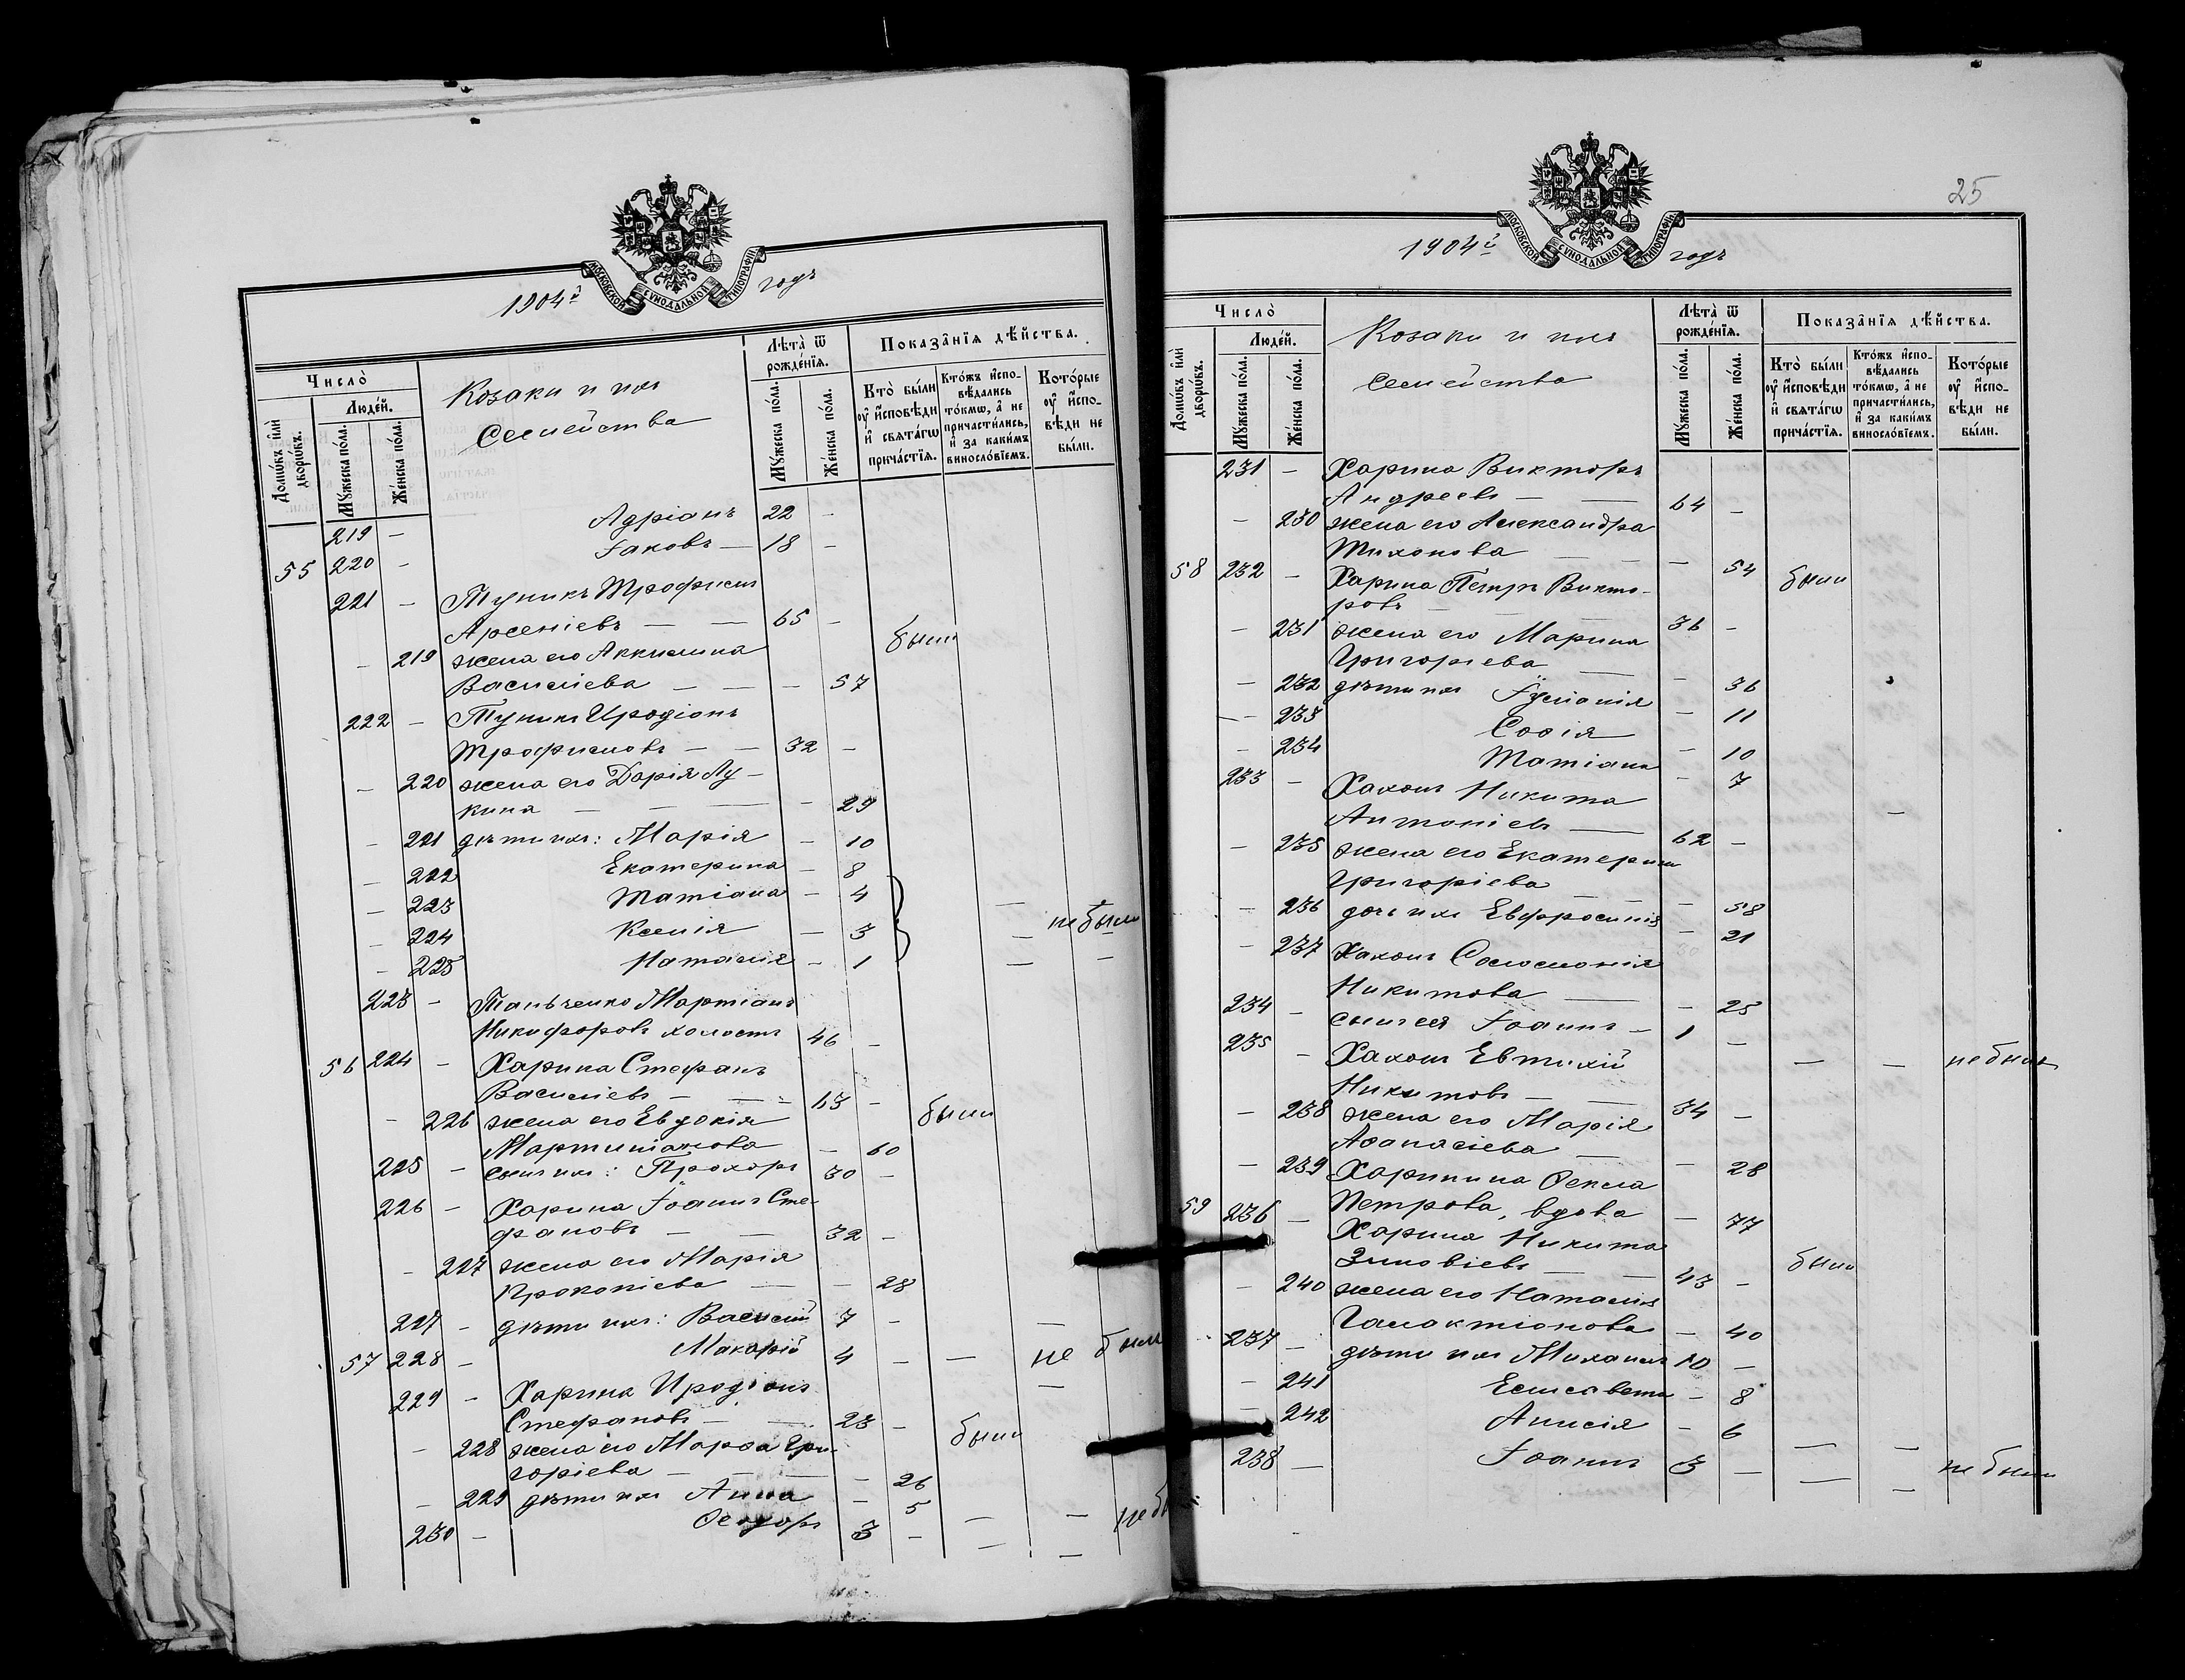 МОСКОВСКОЙ СѴНОДАЛЬНОЙ ТИПОГРАФІИ
1904й годъ
Число̀
Домѡ́въ и҆лѝ дворѡ́въ.
Люде́й.
Мꙋ́жеска по́ла.
Же́нска по́ла.
Козаки и ихъ
Семейства
Лѣта̀ ѿ рожде́нїѧ.
Мꙋ́жеска по́ла.
Же́нска по́ла.
Показа̑нїѧ дѣ́йства.
Кто̀ бы́ли ᲂу҆ и҆сповѣ́ди и҆ свѧта́гѡ прича́стїѧ.
Кто́жъ и҆спо-вѣ́дались то́кмѡ, а҆ не причасти́лись, и҆ за каки́мъ винослѡ́вїемъ.
Кото́рые ᲂу҆ и҆спо-вѣ́ди не бы́ли.
219 – Адріанъ 22 –
55 220 – Іаковъ – 18 –
221 – Туникъ Трофимъ
Арсеніевъ – – 65 –
– 219 жена его Аккилина были
Василіева – – – 57
222 – Туникъ Иродіонъ
Трофимовъ – – 32 –
– 220 жена его Дарія Лу-
кина – – – – 29
– 221 дѣти ихъ: Марія – 10
– 222 Екатерина – 8
– 223 Татіана – 4
– 224 Ксенія – 3 – не были
– 225 Наталія – 1 – –
223 – Мартіанъ
Никифоровъ холостъ 46 –
56 224 – Харина Стефанъ
Василіевъ – – 63 –
– 226 жена его Евдокія были
– 60
225 – сынъ ихъ: Прохоръ 30 –
226 – Харина Іоаннъ Сте-
фановъ – – 32 –
– 227 жена его Марія
Прокопіева – – 28
227 – дѣти ихъ: Василій 7 – –
57 228 – Макарій 4 – – не были
229 – Харина Иродіонъ –
Стефановъ – – 23 –
– 228 жена его Марѳа Гри- были
горіева – – – – 26
– 229 дѣти ихъ Анна – 5 – –
230 – Ѳеодоръ 3 – – –
25
МОСКОВСКОЙ СѴНОДАЛЬНОЙ ТИПОГРАФІИ
1904й годъ
Число̀
Домѡ́въ и҆лѝ дворѡ́въ.
Люде́й.
Мꙋ́жеска по́ла.
Же́нска по́ла.
Козаки и ихъ
семейства
Лѣта̀ ѿ рожде́нїѧ.
Мꙋ́жеска по́ла.
Же́нска по́ла.
Показа̑нїѧ дѣ́йства.
Кто̀ бы́ли ᲂу҆ и҆сповѣ́ди и҆ свѧта́гѡ прича́стїѧ.
Кто́жъ и҆спо-вѣ́дались то́кмѡ, а҆ не причасти́лись, и҆ за каки́мъ винослѡ́вїемъ.
Кото́рые ᲂу҆ и҆спо-вѣ́ди не бы́ли.
231 – Харина Викторъ
Андреевъ – – 64 –
– 230 жена его Александра
Тихонова – – – 54
58 232 – Харина Петръ Викто- были
ровъ – – 36 –
– 231 жена его Марина
Григоріева – – 36
– 232 дѣти ихъ Іуліанія – 11
– 233 Софія – 10
– 234 Татіана – 7
233 – Хахонъ Никита
Антоніевъ – 62 –
– 235 жена его Екатерина
Григоріева – – – 58
– 236 дочь ихъ Евфросинія – 21
– 237 Хахонъ Соломонія
Никитова – – 25
234 – сынъ ея Іоаннъ – 1 –
235 – Хахонъ Евтихій – – не были
Никитовъ – – 34 –
– 238 жена его Марія
Аѳанасіева – – 28
– 239 Харинина Ѳекла
Петрова, вдова – 77
59 236 – Харина Никита
Зиновіевъ – – 43 – были
– 240 жена его Наталія
Галактіонова – 40
237 – дѣти ихъ Михаилъ 10 –
– 241 Елисавета – 8
– 242 Анисія – 6 – –
238 – Іоаннъ 3 – – – не были